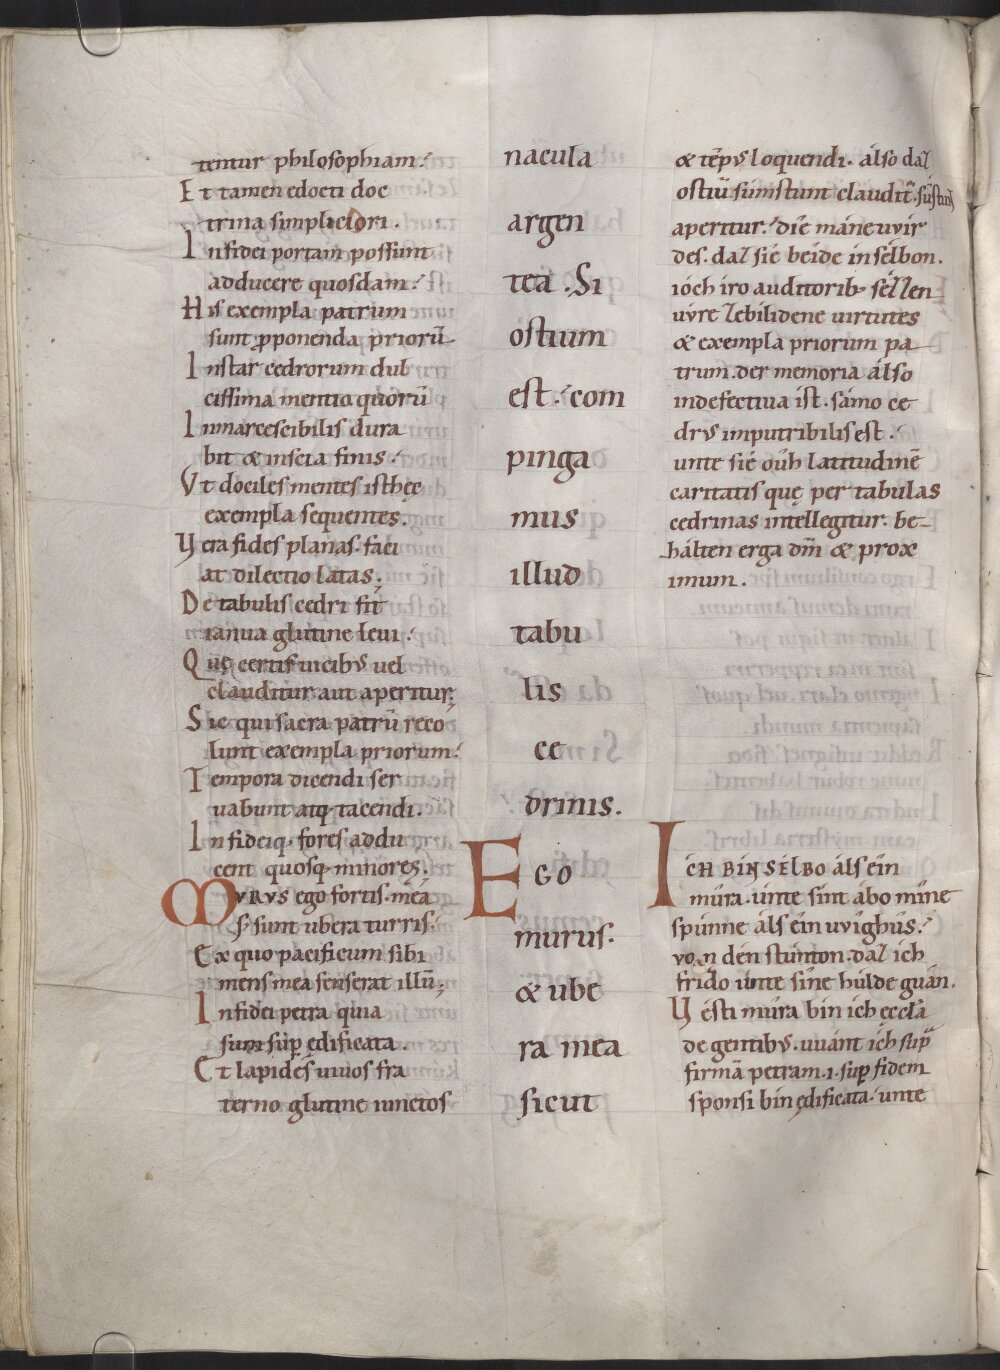 tentur philosophiam.
Et tamen edocti doc
trina simpliciori.
Infidei portam possunt
adducere quosdam.
His exempla patrum
sunt ꝓponenda priorū
Instar cedrorum dul
cissima mentio quorū
Inmarcescibilis dura
bit & inscia finis.
Vt dociles mentes isthęc
exempla sequentes.
Vera fides planas. faci
at dilectio latas.
De tabulis cedri fit
ianua glutine leui.
Quę certis uicibꝰ uel
clauditur aut aperitur;
Sic qui sacra patrū reco
lunt exempla priorum.
Tempora dicendi ser
uabunt atq; tacendi.
Infideiq; fores addu
cent quosq; minores.
MVRVS ego fortis. mea
sunt ubera turris.
Ex quo pacificum sibi
mens mea senserat illū;
Infidei petra quia
sum sup̱ ędificata.
Et lapides uiuos fra
terno glutine iunctos
nacula
argen
tea. Si
ostium
est. com
pinga
mus
illud
tabu
lis
ce
drinis.
EGO
murus.
& ube
ra mea
sicut
& tēpꝰ loquendi. álso daz
ostiū sumstunt claudit̄. sūstunt
aperitur. die máne uvír
des. daz sie béide in sélbon.
ióch íro auditorib; séłłen
uvre lebilidene uirtutes
& exempla priorum pa
trum. der memoria álso
indefectiua ist. sámo ce
drꝰ imputribilis est.
unte sie oúh latitudinē
caritatis quę per tabulas
cedrinas intellegitur. be
hálten erga dm̄ & prox
imum.
ICH BIN SELBO áls ein
múra. únte sint ábo míne
spúnne áls ein uvíghûs.
von dén stúnton. daz ich
frído únte síne húlde guán.
Vésti múra bin ich ęccła
de gentibꝰ. uuánt ich sup̄
firmā petram. i. sup̱ fidem
sponsi bin ędificata. unte